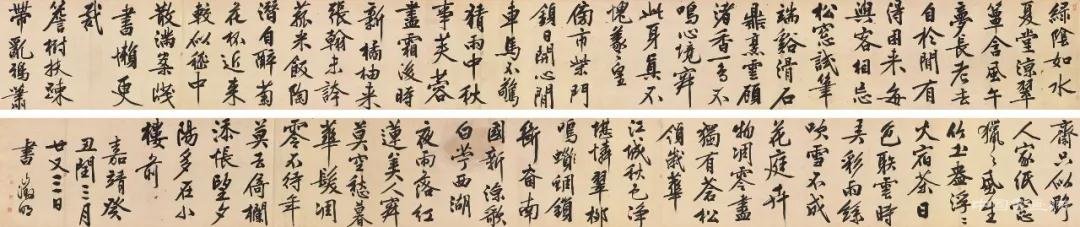 綠陰如水
夏堂涼翠
簟含風午
夢長老去
自於閒有
得困來每
與客相忘
松窓試筆
端谿滑石
鼎烹雲顧
渚香一鳥
鳴心境寂
此身真不
愧羲皇
傍市柴門
鎖日開心閒
車馬不驚
猜雨中秋
事芙蓉
盡霜後時
新橘柚來
張翰未諳
菰米飯陶
潛自醉菊
花杯近來
較似嵇中
散滿案牋
書懶更
裁
簷樹扶疎
帶亂鴉蕭
齋只似野
人家紙窓
獵〻風生
竹土盎浮〻
火宿茶日
色聯雲時
弄彩雨絲
吹雪不成
花庭卉
物凋零盡
獨有蒼松
領歲華
江城秋色淨
堪憐翠柳
鳴蜩鎖
斷南
國新涼歌
白苧西湖
夜雨落紅
蓮美人寂
莫空愁暮
華髮凋
零不待年
莫去倚欄
添悵望夕
陽多在小
樓前
嘉靖癸
丑閏三月
廿又三日
書 徵明